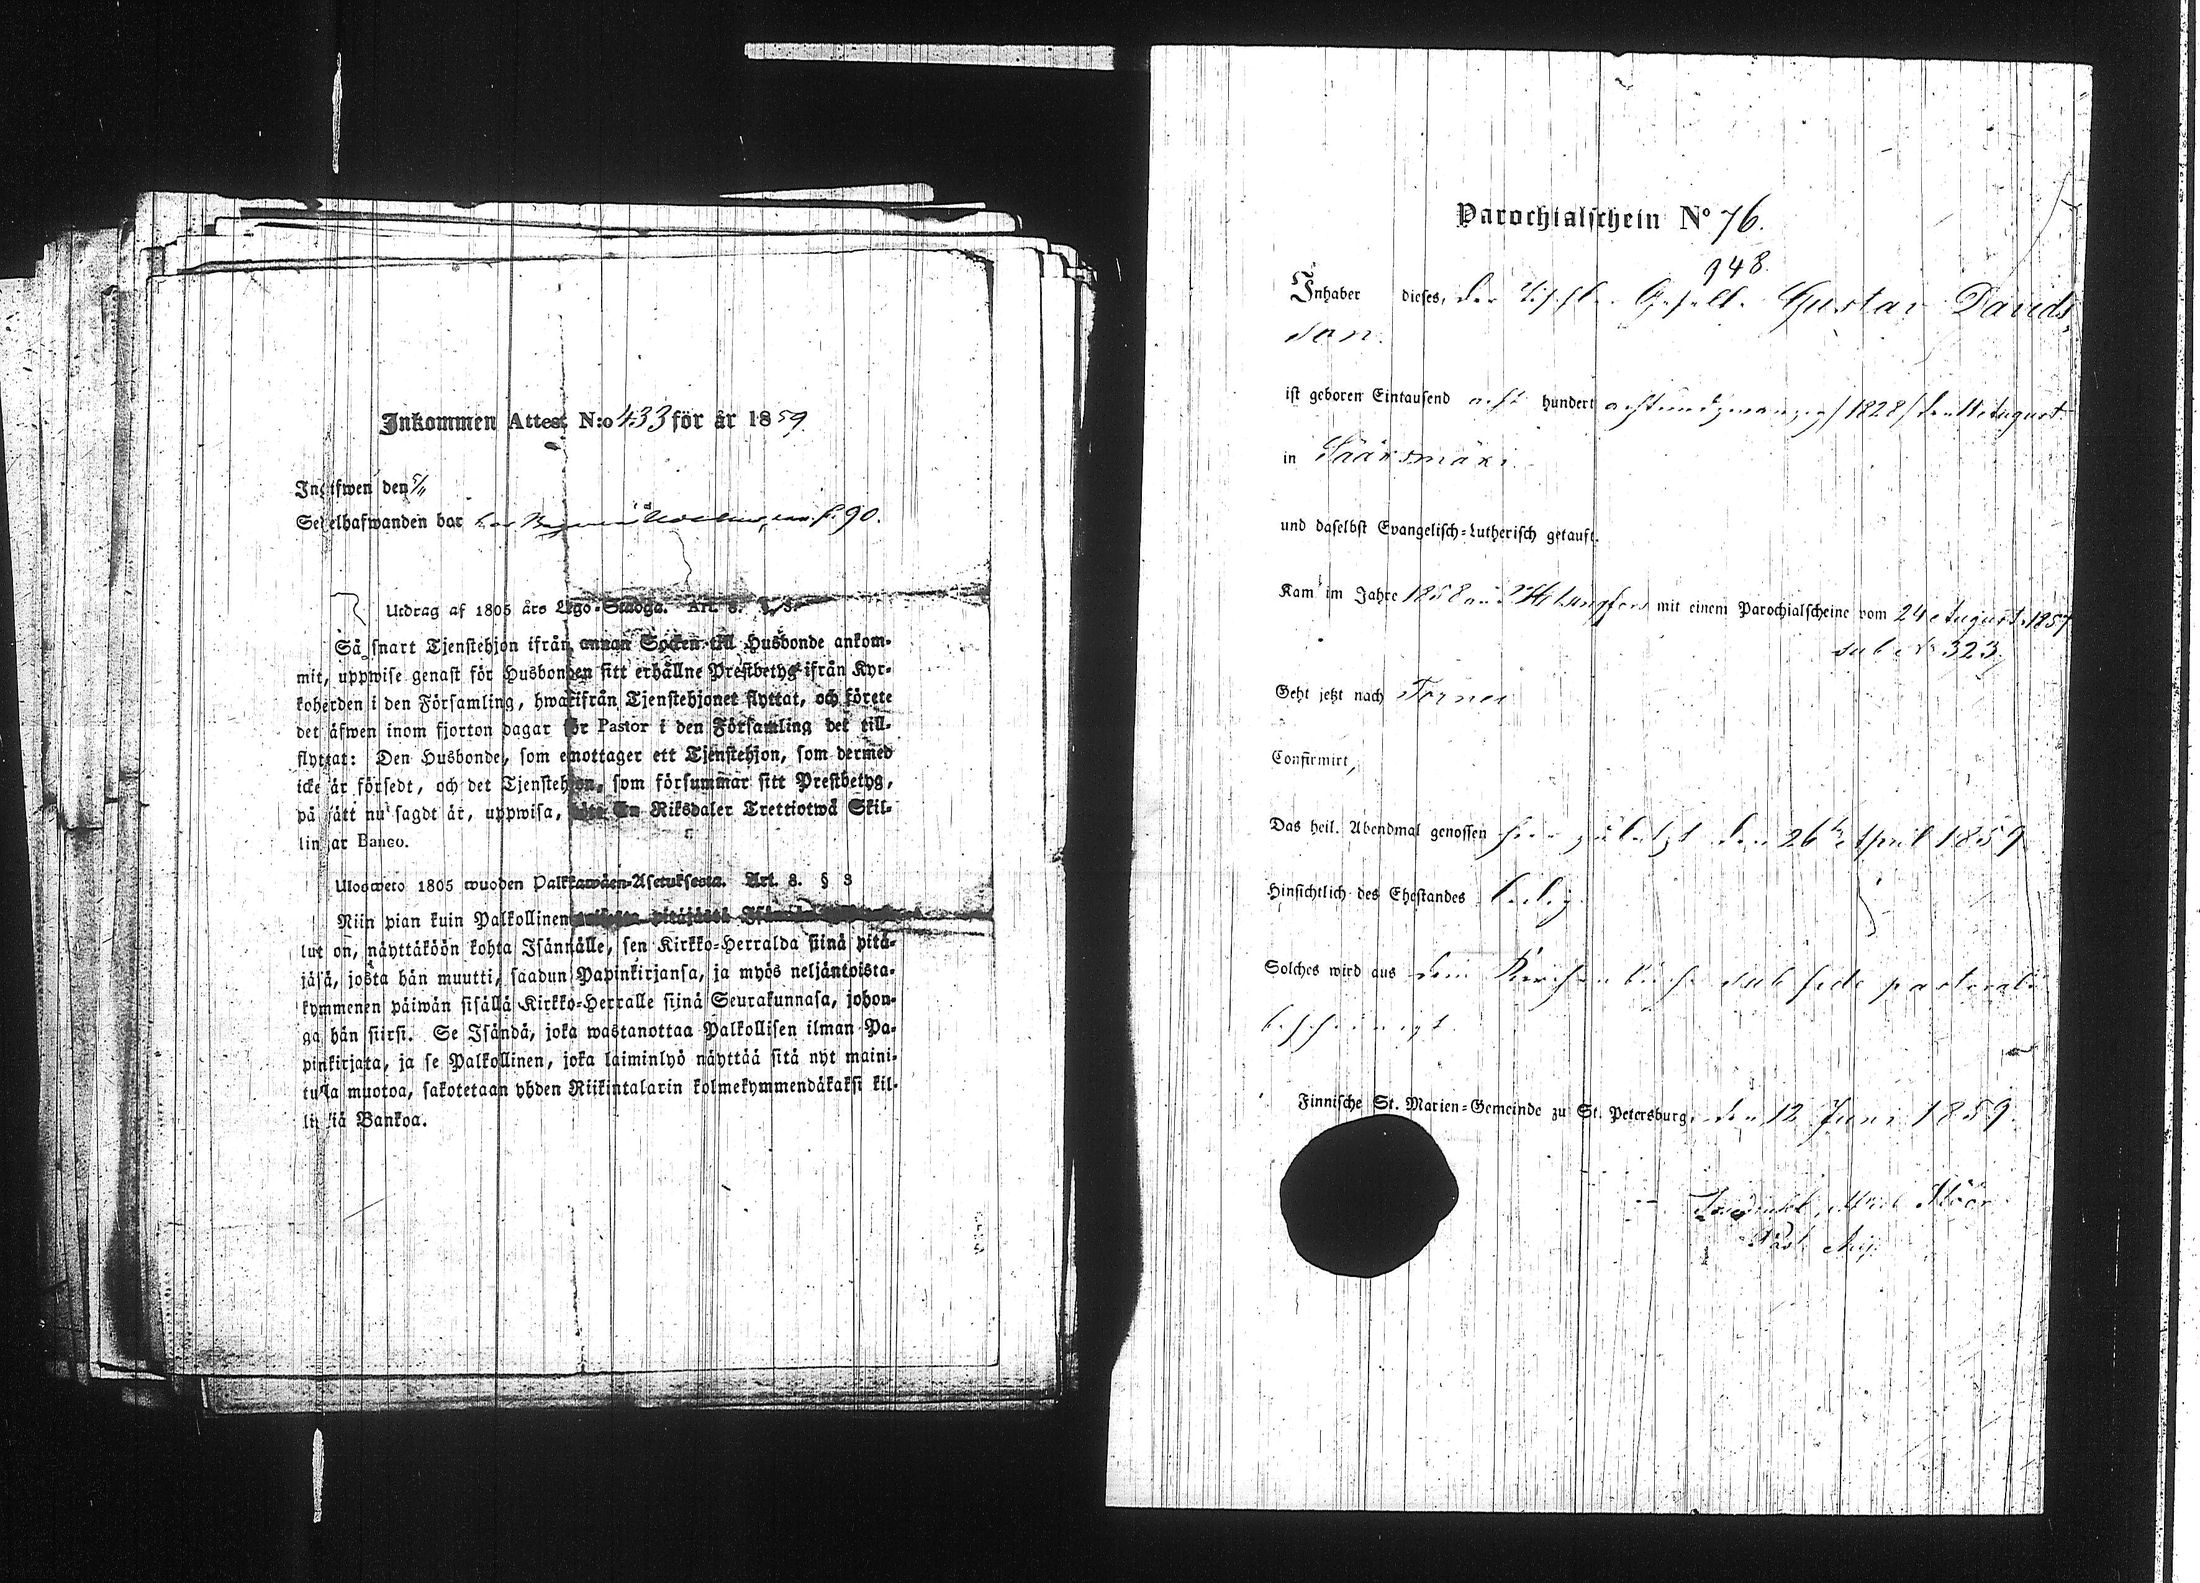 Inkommen Attest N:o 433 för år 1859
Ingifwen den 5/11
Sedelhafwanden bor hos
f. 90.
Utdrag af 1805 års Lego-Stadga. Art. 8. § 3.
Så snart Tjenstehjon ifrån annan Socken till Husbonde ankom-
mit, uppwise genast för Husbonden sitt erhållne Prestbetyg ifrån Kyr-
koherden i den Församling, hwarifrån Tjenstehjonet flyttat, och förete
det äfwen inom fjorton dagar för Pastor i den Församling det till-
flyttat: Den Husbonde, som emottager ett Tjenstehjon, som dermed
icke är försedt, och det Tjenstehjon, som försummar sitt Prestbetyg,
på sätt nu sagdt är, uppwisa, böte En Riksdaler Trettiotwå Skil-
lingar Banco.
Ulosweto 1805 wuoden Palkkawäen-Asetuksesta. Art. 8. § 3
Niin pian kuin Palkollinen pitäjästä
lut on, näyttäköön kohta Isännälle, sen Kirkko-Herralda siinä pitä-
jäsä, josta hän muutti, saadun Papinkirjansa, ja myös neljäntoista-
kymmenen päiwän sisällä Kirkko-Herralle siinä Seurakunnasa, johon-
ga hän siirsi. Se Isändä, joka wastanottaa Palkollisen ilman Pa-
pinkirjata, ja se Palkollinen, joka laiminlyö näyttää sitä nyt maini-
tulla muotoa, sakotetaan yhden Riikintalarin kolmekymmendäkaksi kil-
linkiä Bankoa.
Parochialschein No 76.
948.
Inhaber dieses, der Tischler Gesell. Gustav Davids-
son.
ist geboren Eintausend acht hundert achtundzwanzig /1828/ den 11 August
in Sääksmäki
und daselbst Evangelisch-Lutherisch getauft.
Kam im Jahre 1858 aus Helsingfors mit einem Parochialscheine vom 24 August 1857
sub No 323.
Geht jetzt nach Tornea
Confirmirt,
Das heil. Abendmal genossen hier zuletzt den 26ten April 1859
Hinsichtlich des Ehestandes ledig.
Solches wird aus dem Kirchenbuche sub fide pastorali
bescheinigt.
Finnische St. Marien-Gemeinde zu St. Petersburg, den 12 Juni 1859.